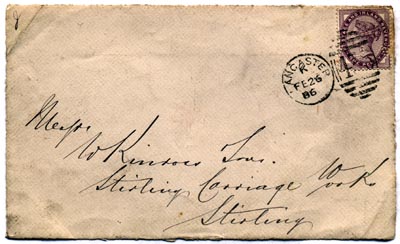 LANCASTER
K
FE 26
86
Messrs
W Kinross Sons.
Stirling Carriage Works
Stirling